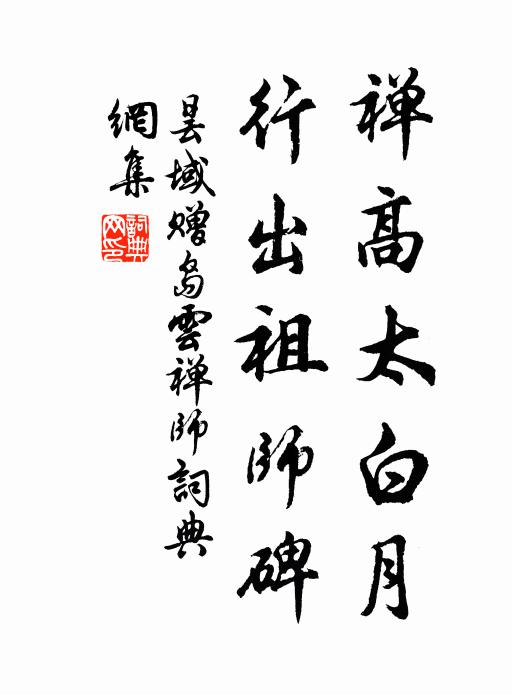 禅高太白月
行出祖師碑
昙域贈島雲禅師詞典
網集
詞典
网印